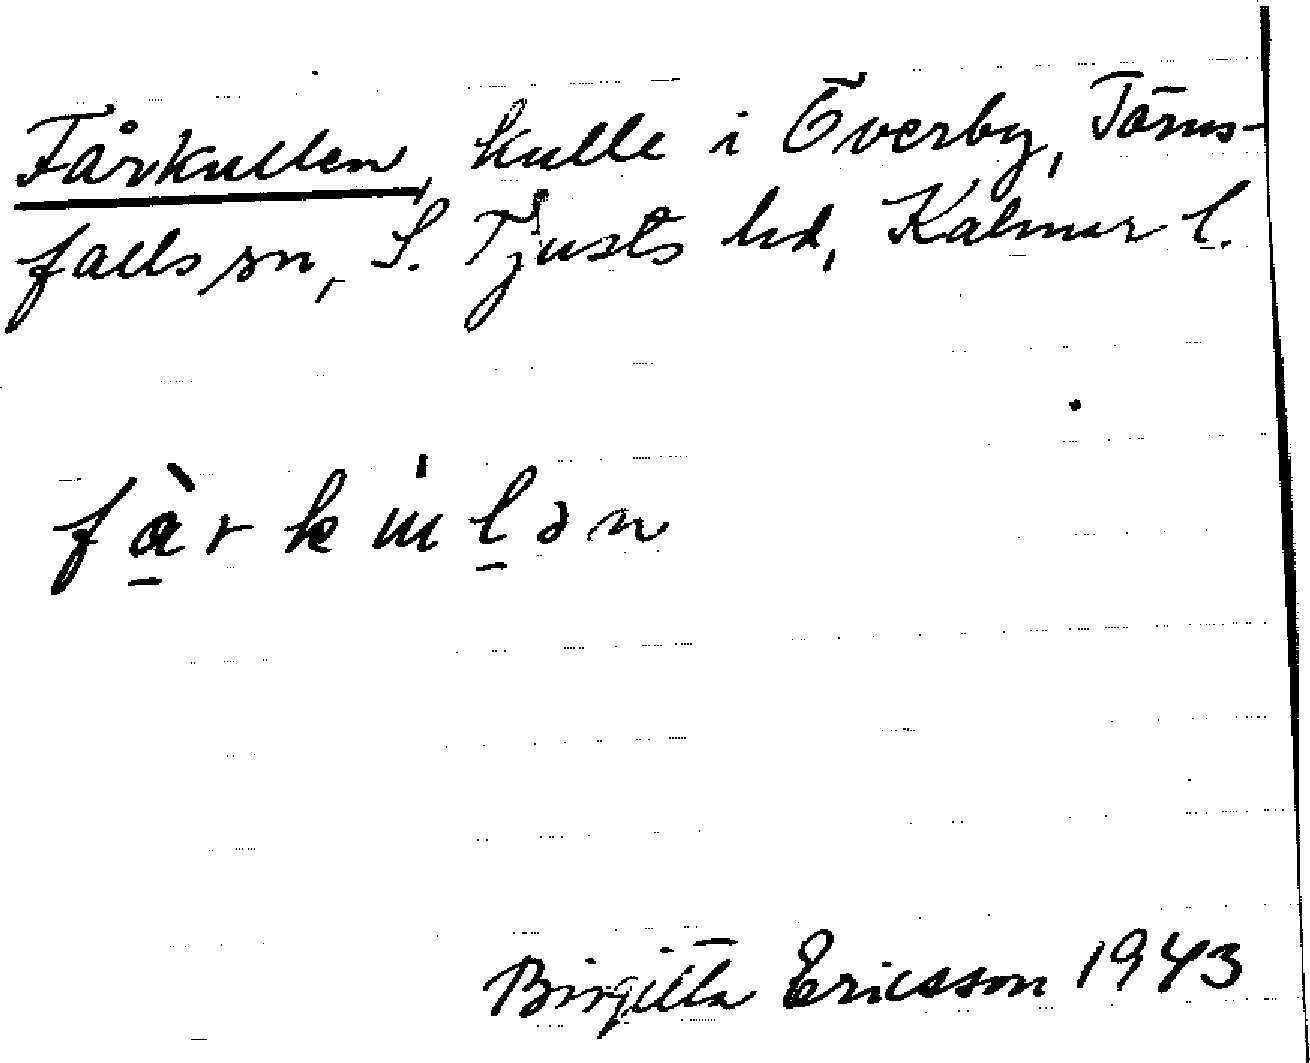 Fårkullen, kulle i Överby, Törns-
falls sn, S. Tjusts hd, Kalmar l.
Birgitta Ericsson 1943